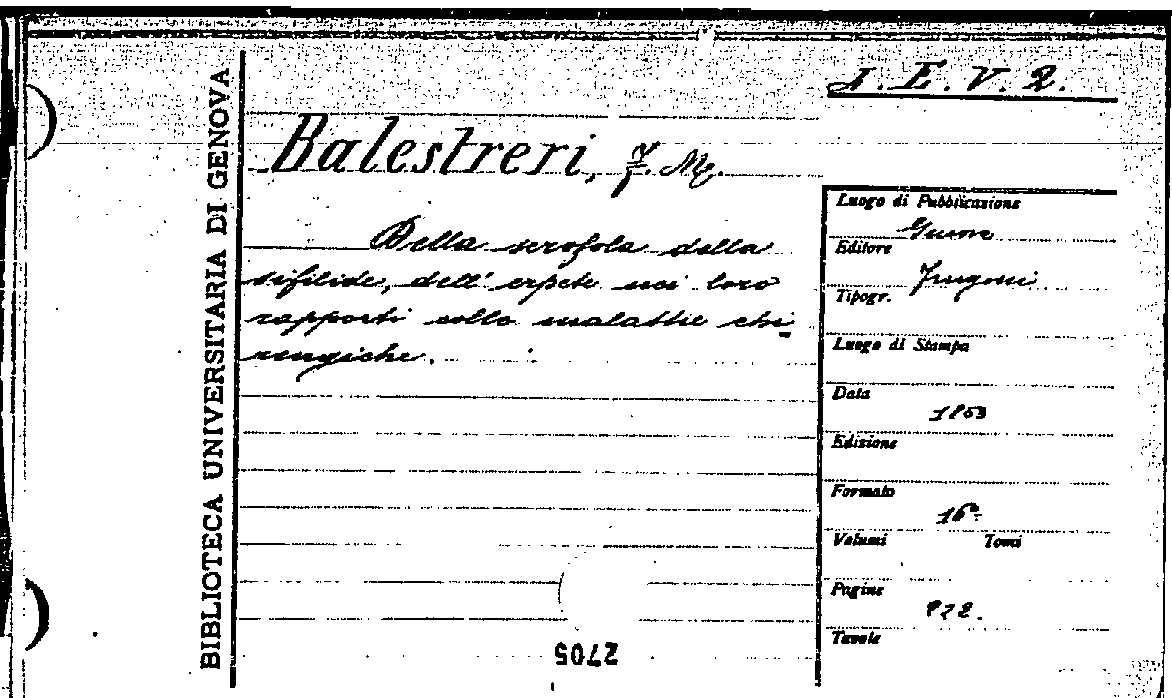 BIBLIOTECA UNIVERSITARIA DI GENOVA
I. E. V. 2.
Balestreri, F. M.
Della scrofola della
sifilide, dell' erpete nei loro
rapporti collo malattie chi-
rurgiche.
Luogo di Pubblicazione
Genova
Editore
Frugoni
Tipogr.
Luogo di Stampa
Data
1853
Edizione
Formato
16º
Volumi Tomi
Pagine
Tavole
2705